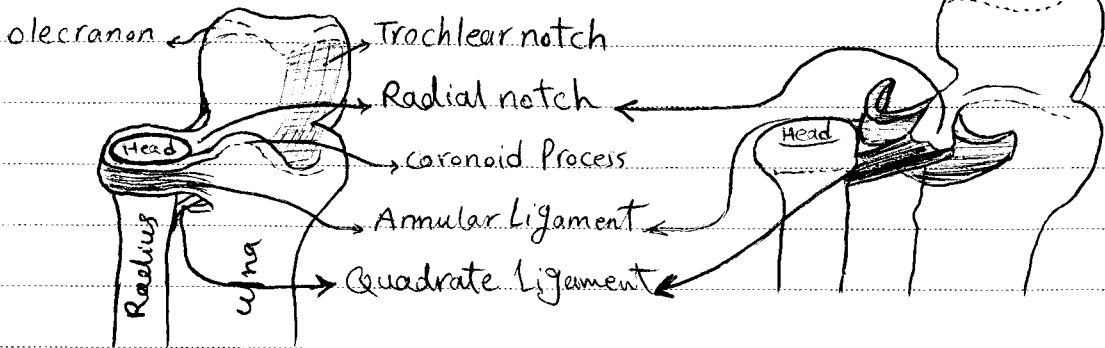 olecranon
Trochlear notch
Radial notch
Head
Head
coronoid Process
Annular Ligament
Quadrate Ligament
Radius
ulna